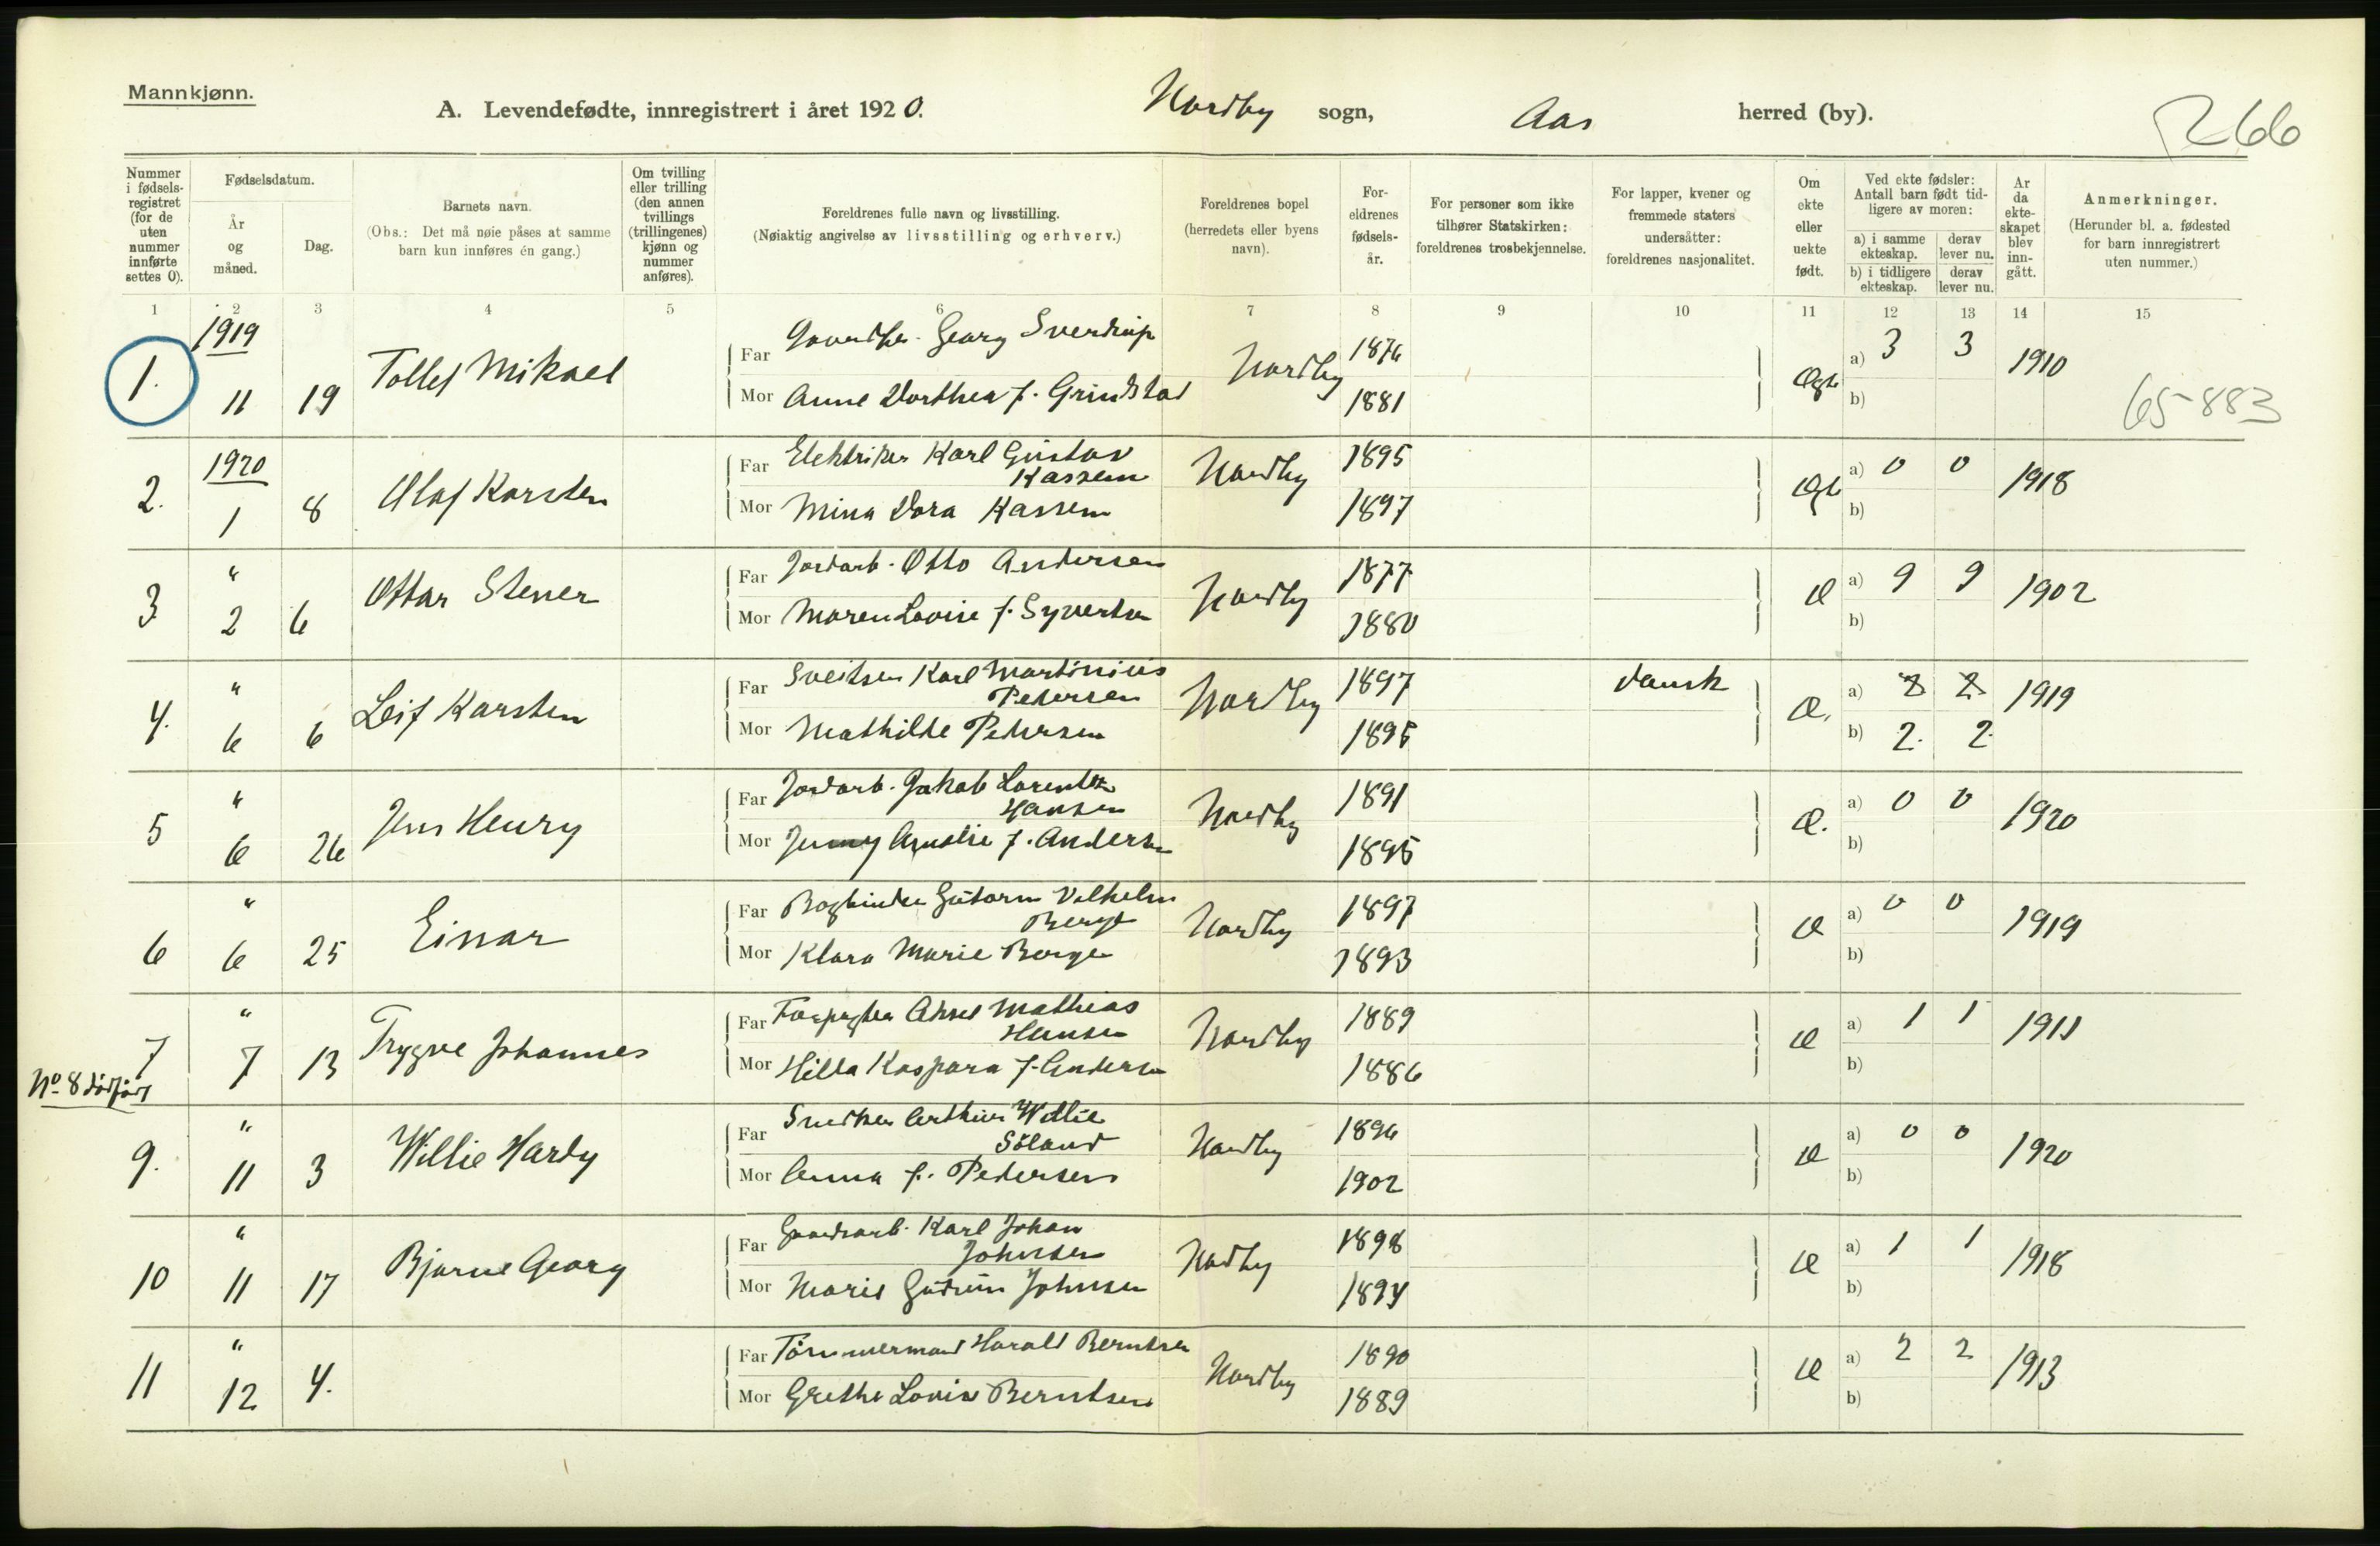 Mannkjønn.
A. Levendefødte, innregistrert i året 1920. Nordby sogn, Aas herred (by).
R 66
Nummer i fødsels-registret (for de uten nummer innførte settes 0).
Fødselsdatum.
År og måned.
Dag.
Barnets navn.
(Obs.: Det må nøie påses at samme barn kun innføres én gang.)
Om tvilling eller trilling (den annen tvillings (trillingenes) kjønn og nummer anføres).
Foreldrenes fulle navn og livsstilling.
(Nøiaktig angivelse av livsstilling og erhverv.)
Foreldrenes bopel (herredets eller byens navn).
For-eldrenes fødsels-år.
For personer som ikke tilhører Statskirken: foreldrenes trosbekjennelse.
For lapper, kvener og fremmede staters undersåtter: foreldrenes nasjonalitet.
Om ekte eller uekte født.
Ved ekte fødsler: Antall barn født tid-ligere av moren:
a) i samme ekteskap. derav lever nu.
b) i tidligere ekteskap. derav lever nu.
Ar da ekte-skapet blev inn-gått.
Anmerkninger.
(Herunder bl. a. fødested for barn innregistrert uten nummer.)
1 2 3 4 5 6 7 8 9 10 11 12 13 14 15
1. 1919 11 19 Tollef Mikael
Far Georg Sverdrup Nordby 1876 a) 3 3 1910
Mor Anne Dorthea f. Grindstad 1881 Ægte b)
65-883
2. 1920 1 8 Olaf Karsten
Far Elektriker Karl Gustav Kassem Nordby 1895 Ægte a) 0 0 1918
Mor Mina Dora Kassem 1897 b)
3 " 2 6 Ottar Stener
Far Jordarb. Otto Andersen Nordby 1877 Æ a) 9 9 1902
Mor Maren Lovise f. Syvertsen 1880 b)
4. " 6 6 Leif Karsten
Far Sveitser Karl Martinius Petersen Nordby 1897 dansk Æ. a) 2 2 1919
Mor Mathilde Petersen 1895 b) 2. 2.
5 " 6 26 Jens Henry
Far Jordarb. Jakob Lorentz Hansen Nordby 1891 Æ. a) 0 0 1920
Mor Jenny Amalie f. Andersen 1895 b)
6 " 6 25 Einar
Far Bogbinder Gutorm Vilhelm Berge Nordby 1897 Æ a) 0 0 1919
Mor Klara Marie Berge 1893 b)
7 " 7 13 Trygve Johannes
Far Aksel Mathias Hansen Nordby 1889 Æ a) 1 1 1911
Mor Hilla Kaspara f. Andersen 1886 b)
No 8 dødfødt
9. " 11 3 Willie Hardy
Far Snedker Arthur Willie Söland Nordby 1896 Æ a) 0 0 1920
Mor Anna f. Petersen 1902 b)
10 " 11 17 Bjarne Georg
Far Gaardsarb. Karl Johan Johnsen Nordby 1898 Æ a) 1 1 1918
Mor Marie Gudrun Johnsen 1894 b)
11 " 12 4.
Far Tömmermand Harald Berntsen Nordby 1890 Æ a) 2 2 1913
Mor Grethe Lovise Berntsen 1889 b)